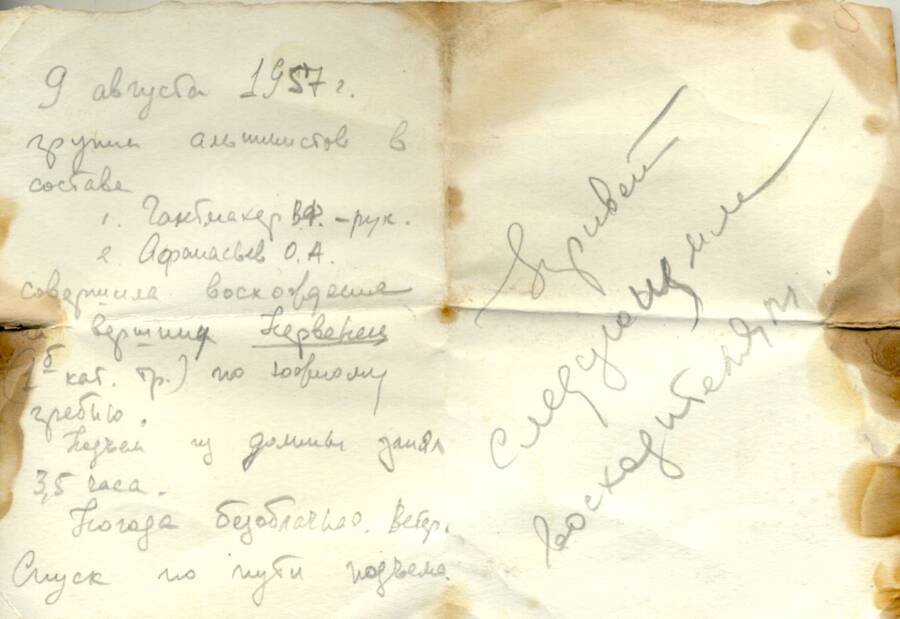 9 августа 1957 г.
группа альпинистов в
составе
1. Гантмахер В.Ф. - рук.
2 Афанасьев О.А.
совершила восхождение
на вершину Первенец
(1б кат. тр.) по южному
гребню.
Подъем из долины занял
3,5 часа.
Погода безоблачная. Ветер.
Спуск по пути подъема.
Привет
следующим
восходителям.